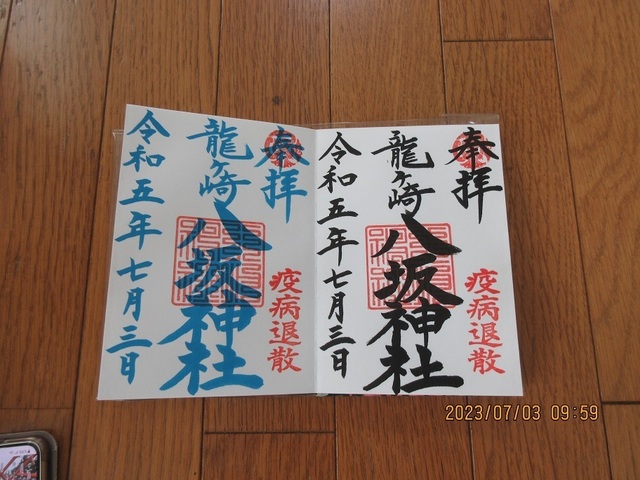 奉拝
疫病退散
龍ヶ崎
八坂神社
令和五年七月三日
奉拝
疫病退散
龍ヶ崎
八坂神社
令和五年七月三日
2023/07/03 09:59